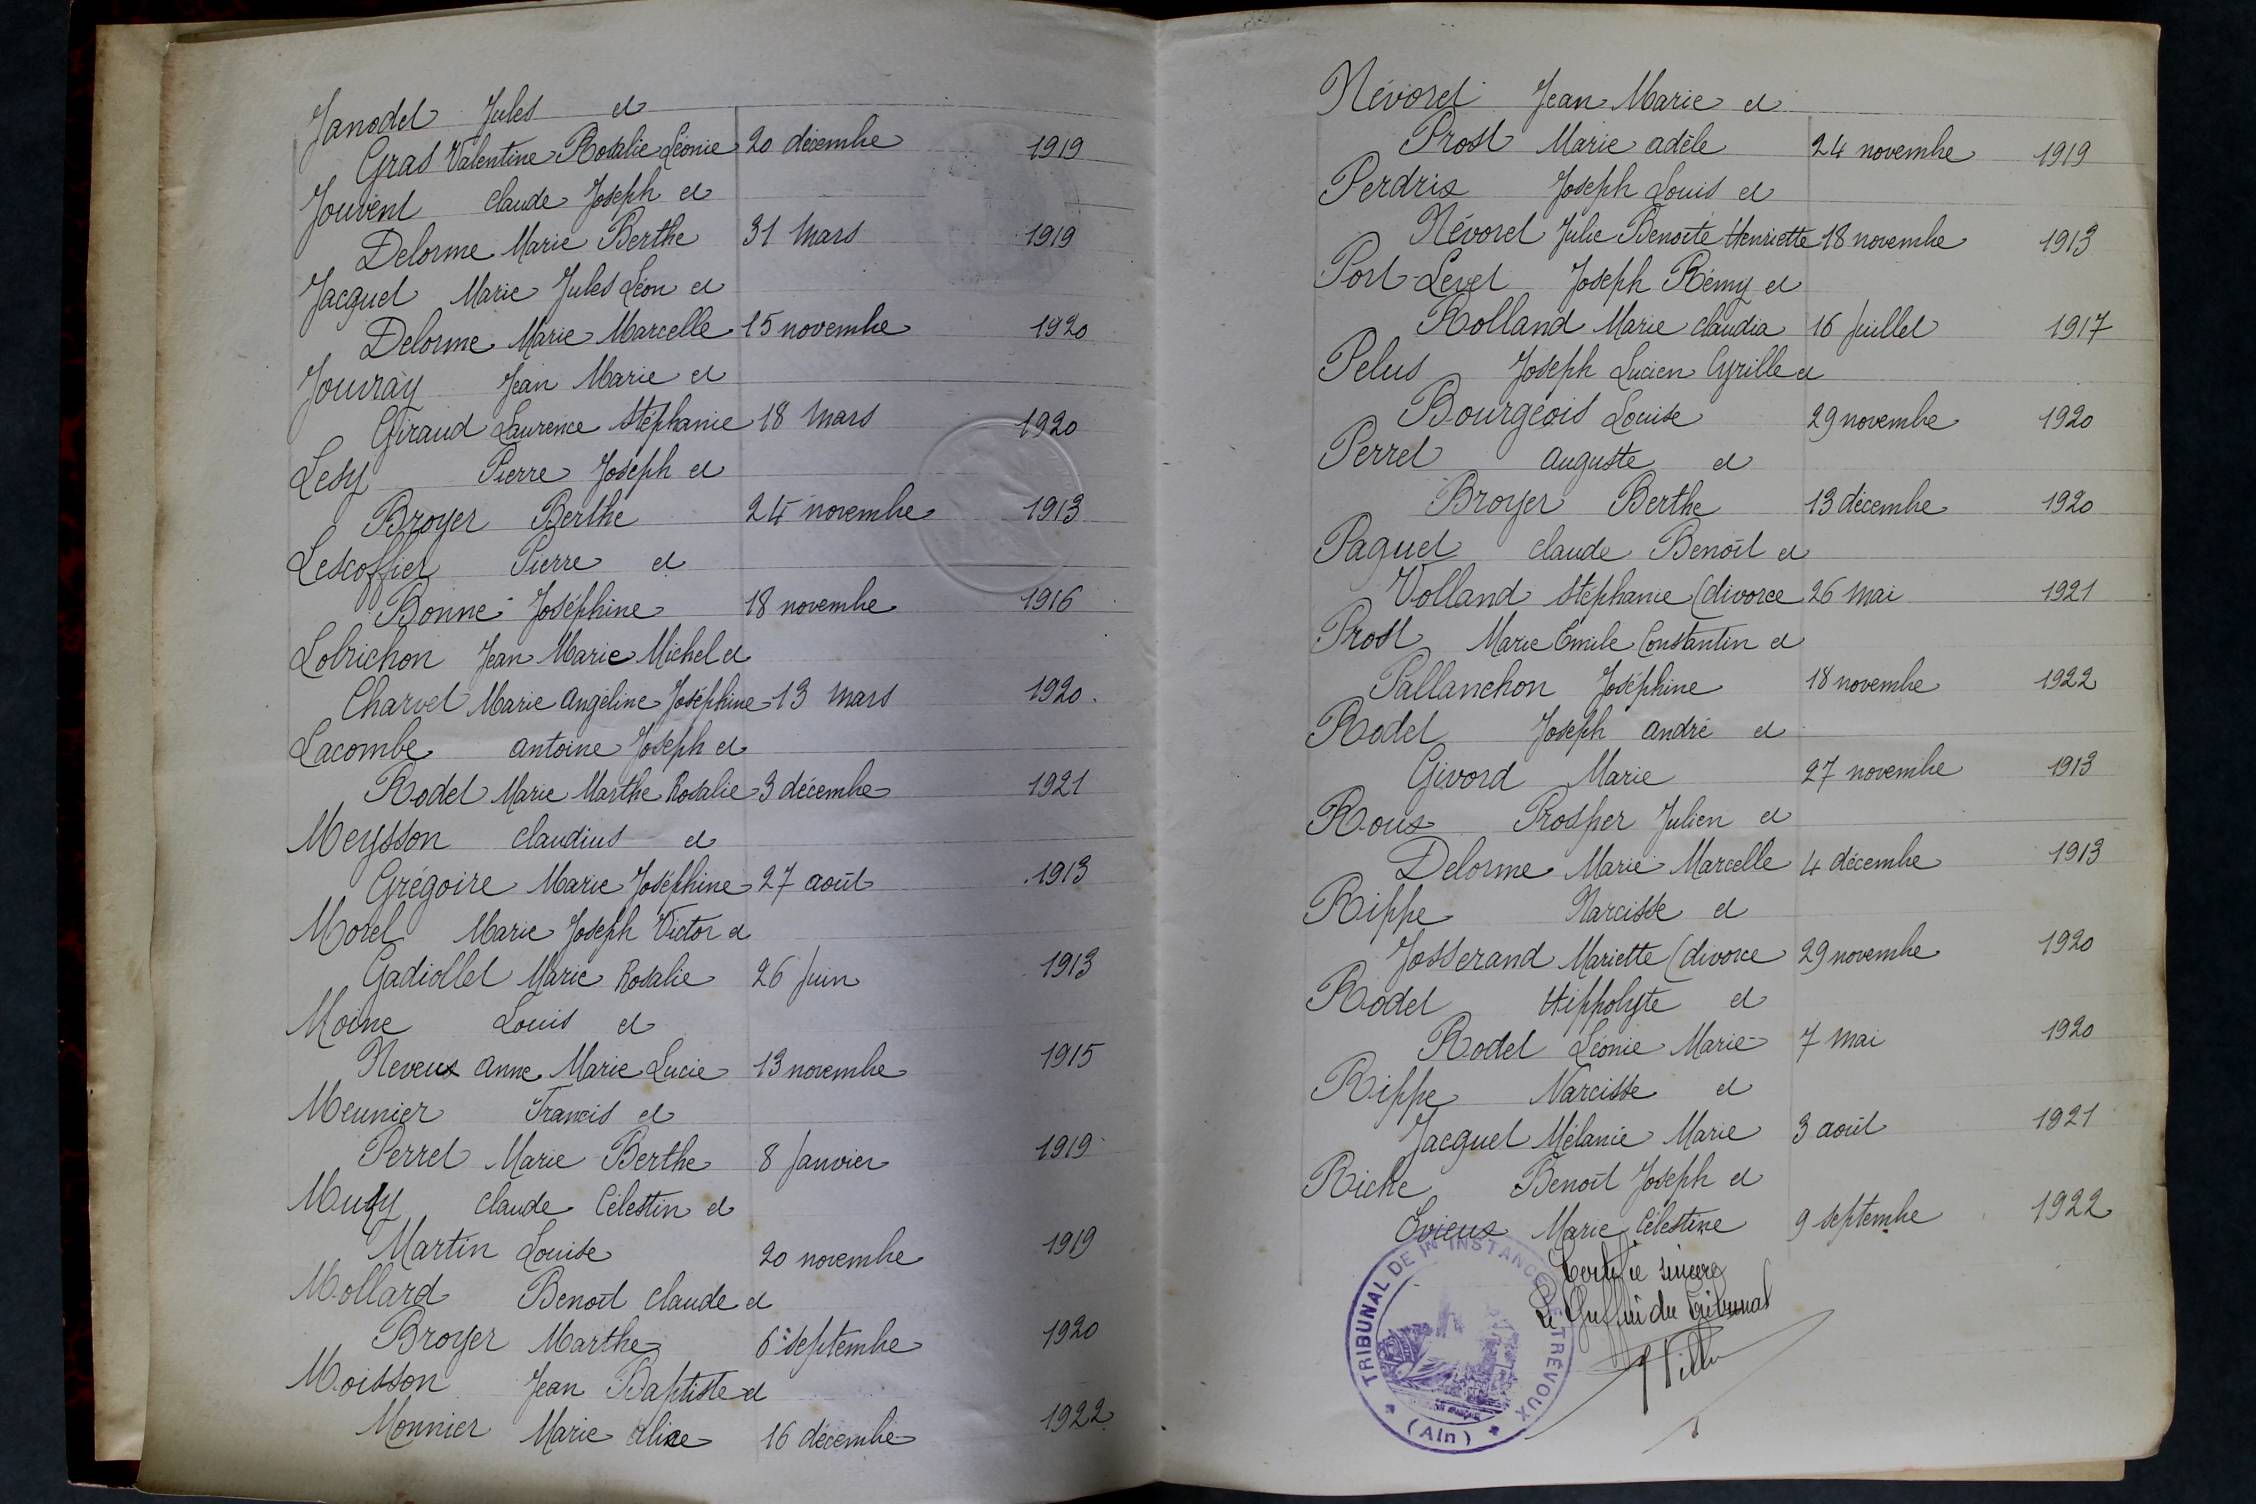 Janodet Jules et
Gras Valentine Rosalie Léonie 20 décembre 1919
Jouvent Claude Joseph et
Delorme Marie Berthe 31 Mars 1919
Jacquet Marie Jules Léon et
Delorme Marie Marcelle 15 novembre 1920
Jouvray Jean Marie et
Giraud Laurence Stéphanie 18 Mars 1920
Lesy Pierre Joseph et
Broyer Berthe 24 novembre 1913
Lescoffier Pierre et
Bonne Joséphine 18 novembre 1916
Lobrichon Jean Marie Michel et
Charvet Marie Angéline Joséphine 13 Mars 1920
Lacombe Antoine Joseph et
Rodet Marie Marthe Rosalie 3 décembre 1921
Meysson Claudius et
Grégoire Marie Joséphine 27 août 1913
Morel Marie Joseph Victor et
Gadiollet Marie Rosalie 26 Juin 1913
Moine Louis et
Neveux Anne Marie Lucie 13 novembre 1915
Meunier Francis et
Perret Marie Berthe 8 Janvier 1919
Claude Célestin et
Martin Louise 20 novembre 1919
Mollard Benoît Claude et
Broyer Marthe 6 septembre 1920
Moisson Jean Baptiste et
Monnier Marie Alice 16 décembre 1922
Névoret Jean Marie et
Prost Marie Adèle 24 novembre 1919
Perdrix Joseph Louis et
Névoret Julie Benoîte Henriette 18 novembre 1913
Port-Levet Joseph Rémy et
Rolland Marie Claudia 16 Juillet 1917
Pelus Joseph Lucien Cyrille et
Bourgeois Louise 29 novembre 1920
Perret Auguste et
Broyer Berthe 13 décembre 1920
Paquet Claude Benoît et
Volland Stéphanie (divorce 26 Mai 1921
Prost Marie Emile Constantin et
Pallanchon Joséphine 18 novembre 1922
Rodet Joseph André et
Givord Marie 27 novembre 1913
Roux Prosper Julien et
Delorme Marie Marcelle 4 décembre 1913
Rippe Narcisse et
Josserand Mariette (divorce 29 novembre 1920
Rodet Hippolyte et
Rodet Léonie Marie 7 Mai 1920
Rippe Narcisse et
Jacquet Mélanie Marie 3 août 1921
Riche Benoît Joseph et
Ovieux Marie Célestine 9 septembre 1922
Certifié sincère
Le Greffier du Tribunal
TRIBUNAL DE 1re INSTANCE DE TRÉVOUX
(Ain)